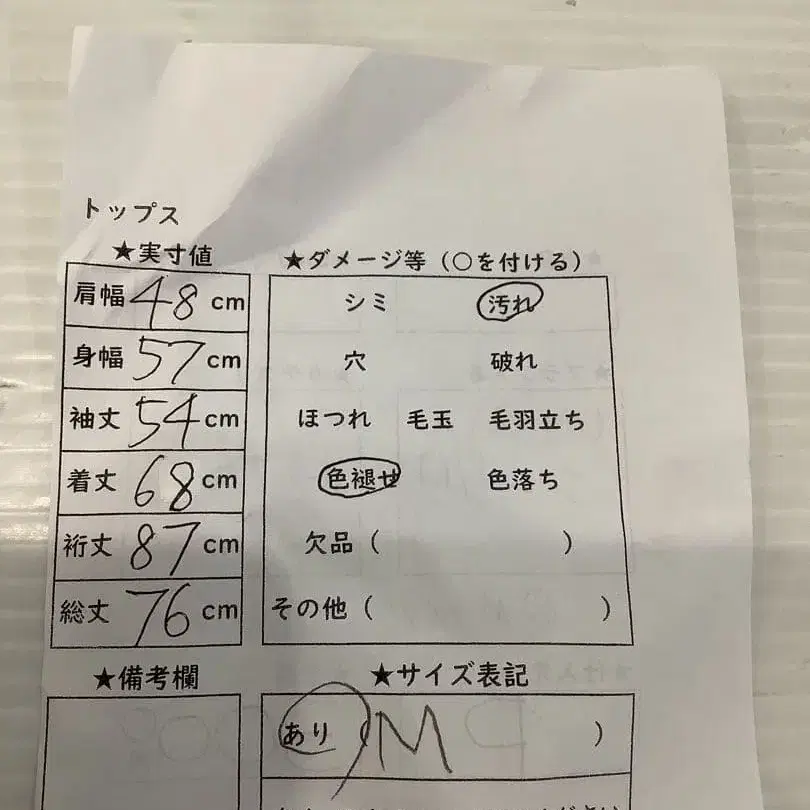 トップス
★実寸値
肩幅 48 cm
身幅 57 cm
袖丈 54 cm
着丈 68 cm
裄丈 87 cm
総丈 76 cm
★備考欄
★ダメージ等（○を付ける）
シミ 汚れ
穴 破れ
ほつれ 毛玉 毛羽立ち
色褪せ 色落ち
欠品（ ）
その他（ ）
★サイズ表記
あり（M ）